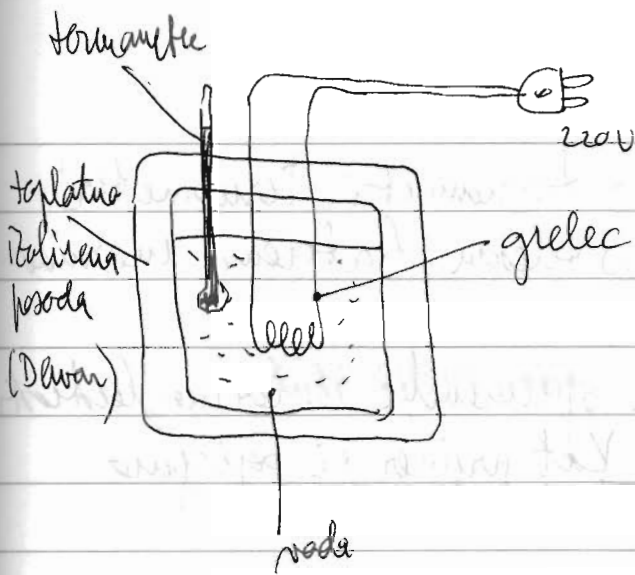 termometer
220V
toplotno
izolirena
posoda
(Dewar)
grelec
voda